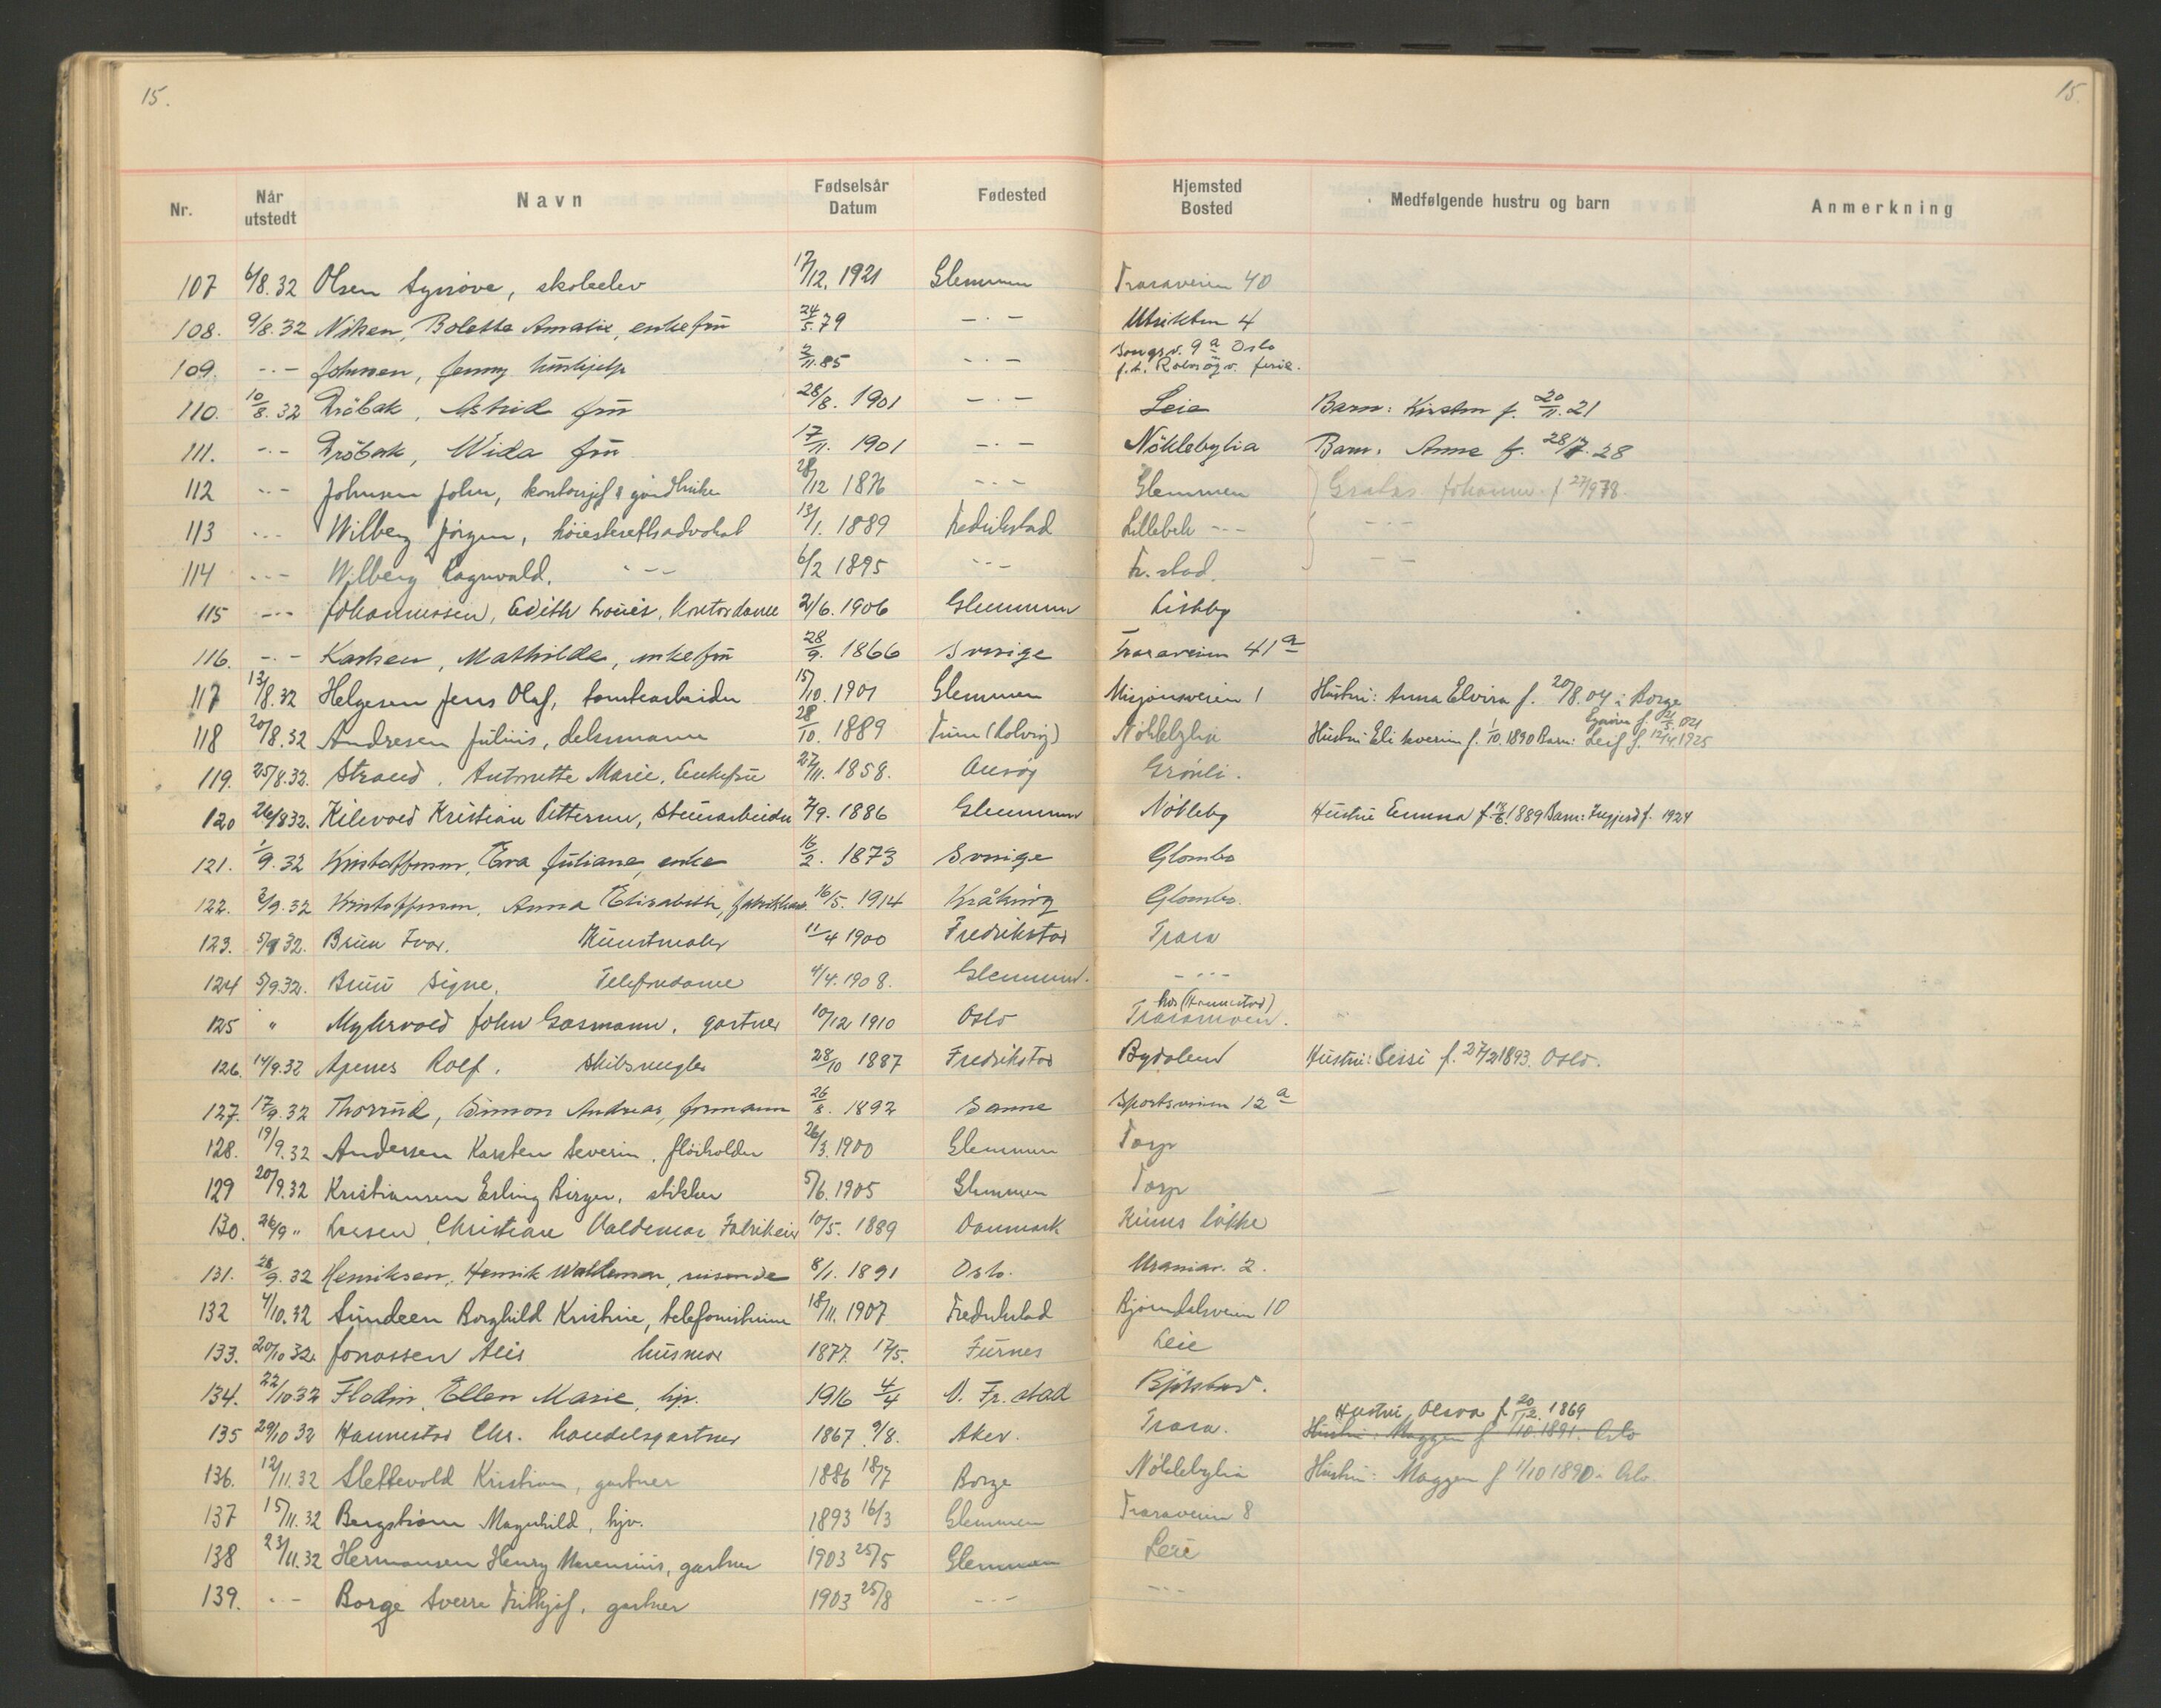 15. 15.
Nr. Når utstedt Navn Fødselsår Datum Fødested Hjemsted Bosted Medfølgende hustru og barn Anmerkning
107 6/8.32 Olsen Synnöve, skoleelev 17/12.1921 Glemmen Traraveien 40
108. 9/8.32 Nilsen, Bolette Amalie, enkefru 24/5.79 -.- Utsikten 4
109. -.- Johnsen, Jenny hushjelp 2/11.85 -.- 9a Oslo
f.t. ferie.
110. 10/8.32 Dröbak, Astrid fru 28/8.1901 -.- Leie Barn: Kirsten f. 20/11.21
111. -.- Dröbak, Wida fru 17/11.1901 -.- Nöklebylia Barn: Anne f. 28/7.28
112 -.- Johnsen John, kontorsjef & 28/12 1876 -.- Glemmen Gratis Johanne f 27/9 78.
113 -.- Wilberg Jörgen, höiesterettsadvokat 13/1.1889 Fredrikstad Lillebek -.- -.-
114 -.- Wilberg Ragnvald, -.- 6/2 1895 -.- Fr.stad. -.-
115 -.- Johannessen, Edith Louise, Kontordame 2/6.1906 Glemmen Lisleby
116. -.- Karlsen, Mathilde, enkefru 28/9.1866 Sverige Traraveien 41a
117 13/8.32 Helgesen Jens Olaf, tomtearbeider 15/10.1901 Glemmen Misjonsveien 1 Hustru: Anna Elvira f. 20/8.04 i Borge
118 20/8.32 Andresen Julius, delsmann 28/10.1889 Tune (Rolvsöy) Nöklebylia Hustru Eli Severine f. 1/10.1890 Barn: Leif f. 12/4 1925
119. 25/8.32. Strand, Antonette Marie, Enkefru 27/11.1858. Onsöy Grönli.
120 26/8 32. Kilevold Kristian Pettersen, Stenarbeider 7/9.1886 Glemmen Nökleby Hustru Emma f. 1889 Barn: Ingjerd f. 1924
121. 1/9.32 Kristoffersen, Eva Juliane, enke 16/2.1873 Sverige Glombo
122. 2/9.32 Kristoffersen, Anna Elisabeth, fabrikkarb. 16/5.1914 Kråkeröy Glombo.
123. 5/9 32. Bruu Ivar. Kunstmaler 11/4 1900 Fredrikstad Trara
124 5/9.32. Bruu Signe, Telefondame 4/4.1908. Glemmen. -.-
125 " Myhrvold John Gasmann, gartner 10/12 1910 Oslo hos (Hannestad)
Traramoen.
126. 14/9.32 Apenes Rolf. Skibsmegler 28/10 1887 Fredrikstad Bydalen Hustru: Sissi f. 27/2 1893. Oslo.
127. 17/9.32 Thorrud, Simon Andreas, formann 26/8.1892 Sanne Sportsveien 12a
128. 19/9.32 Andersen Karsten Severin, flöiholder 26/3.1900 Glemmen Torp
129 20/9.32 Kristiansen Erling Birger, stikker 5/6.1905 Glemmen Torp
130. 26/9 " Larsen, Christian Valdemar Fabrikeier 10/5.1889 Danmark Kiuns lökke
131. 28/9.32 Henriksen, Henrik Waldemar, reisende 8/1.1891 Oslo. Uraniav. 2.
132 4/10.32 Sundeen Borghild Kristine, telefonistinne 18/11.1907 Fredrikstad Bjørndalsveien 10
133. 20/10 32. Jonassen Alis husmor 1877 17/5. Furnes Leie
134. 22/10 32 Flodin, Ellen Marie, hjv. 1916 4/4 V. Fr.stad Bjölstad.
Hustru, Olava f 20/12.1869
135 29/10 32 Hannestad Chr. handelsgartner 1867 9/8. Aker. Trara. Hustru: Maggen f 1/10.1891. Oslo
136. 12/11.32 Slettevold Kristian, gartner 1886 18/7 Borge Nöklebylia Hustru: Maggen f 1/10 1890 i Oslo.
137 15/11.32 Bergström Magnhild, hjv. 1893 16/3 Glemmen Traraveien 8
138 23/11.32 Hermansen Henry Marensius, gartner 1903 25/5 Glemmen Leie
139. -.- Borge Sverre Fritjof, gartner 1903 25/8 -.- -.-